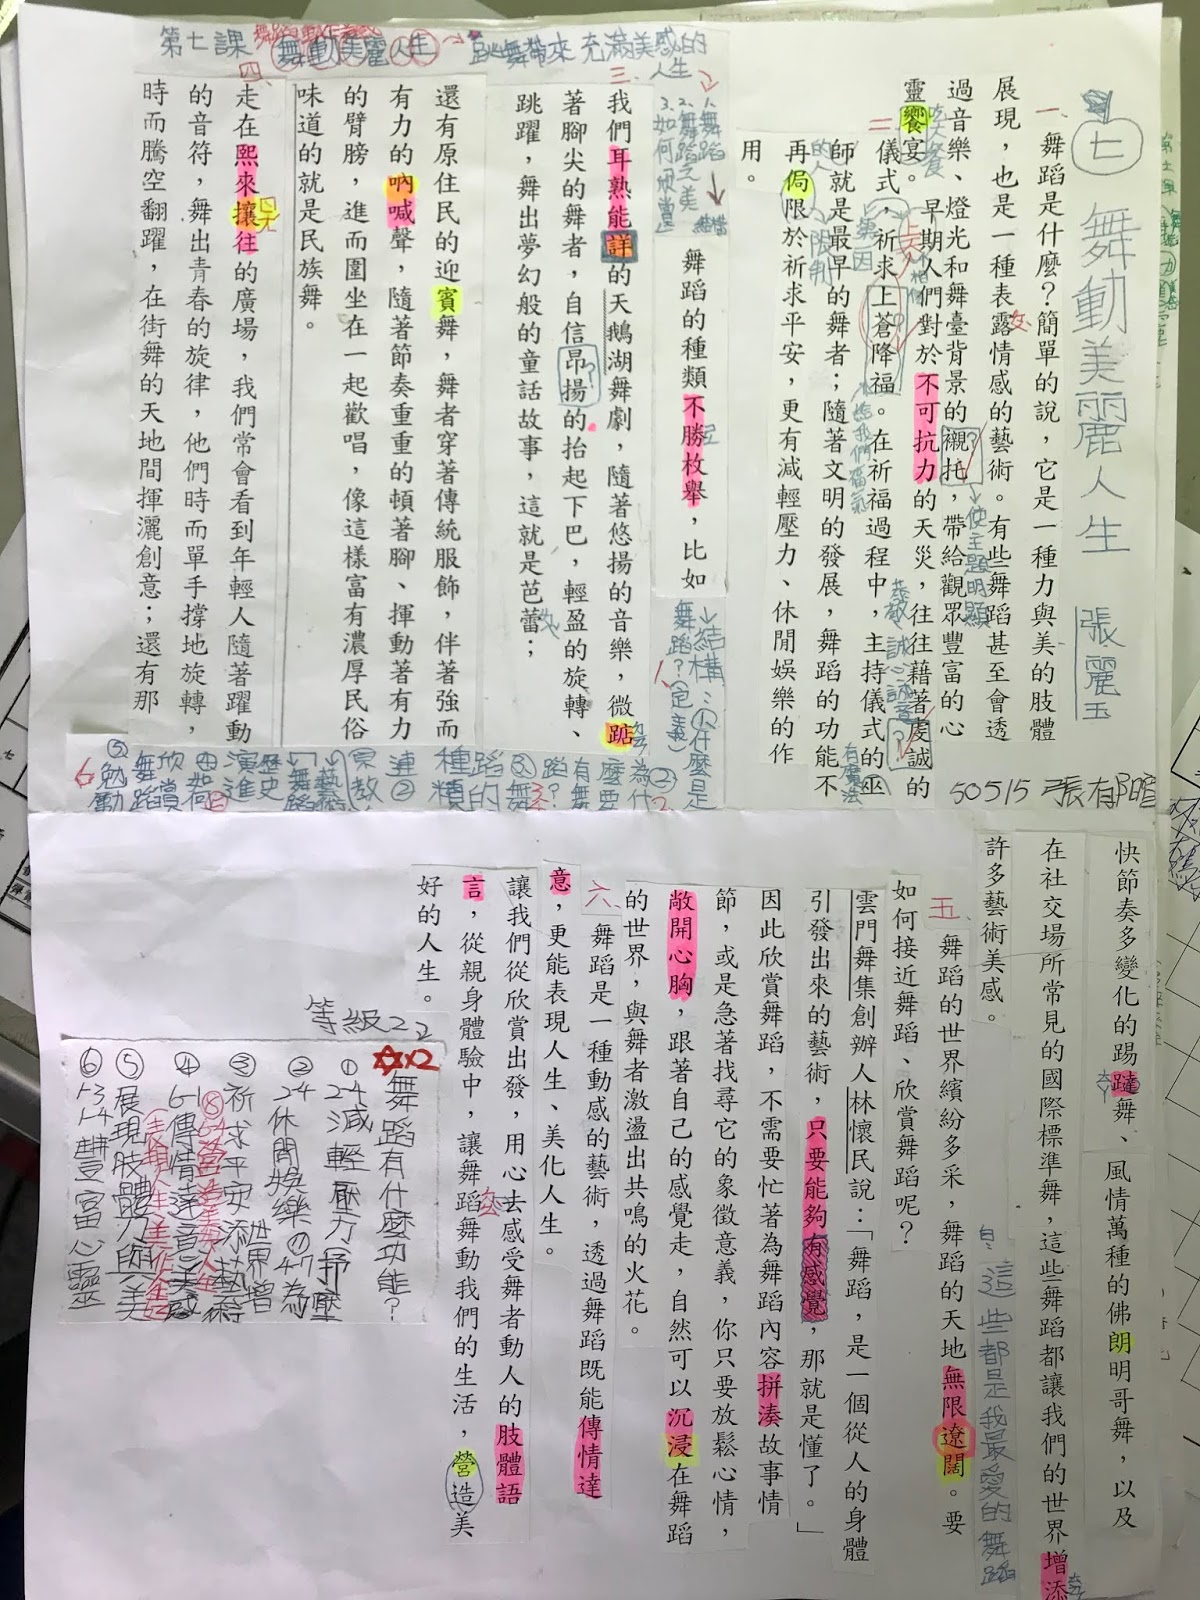 第七課 舞動美麗人生 → 跳舞帶來充滿美感的人生
七 舞動美麗人生 張麗玉
50515 張有暄
一、舞蹈是什麼？簡單的說，它是一種力與美的肢體
展現，也是一種表露情感的藝術。有些舞蹈甚至會透
過音樂、燈光和舞臺背景的襯托，帶給觀眾豐富的心
靈饗宴。
二、早期人們對於不可抗力的天災，往往藉著虔誠的
儀式，祈求上蒼降福。在祈福過程中，主持儀式的巫
師就是最早的舞者；隨著文明的發展，舞蹈的功能不
再侷限於祈求平安，更有減輕壓力、休閒娛樂的作
用。
使主題明顯
給我們福氣
恭敬 誠心
有魔法的人
限制
三、
1.舞蹈
2.舞蹈完美
3.如何欣賞
結構
舞蹈的種類不勝枚舉，比如
我們耳熟能詳的天鵝湖舞劇，隨著悠揚的音樂，微踮
著腳尖的舞者，自信昂揚的抬起下巴，輕盈的旋轉、
跳躍，舞出夢幻般的童話故事，這就是芭蕾；
還有原住民的迎賓舞，舞者穿著傳統服飾，伴著強而
有力的吶喊聲，隨著節奏重重的頓著腳、揮動著有力
的臂膀，進而圍坐在一起歡唱，像這樣富有濃厚民俗
味道的就是民族舞。
四、
走在熙來攘往的廣場，我們常會看到年輕人隨著躍動
的音符，舞出青春的旋律，他們時而單手撐地旋轉，
時而騰空翻躍，在街舞的天地間揮灑創意；還有那
結構：①什麼是舞蹈？（定義）
②為什麼要有舞蹈？
③舞蹈的種類
④如何欣賞舞蹈
⑤勉勵
快節奏多變化的踢躂舞、風情萬種的佛朗明哥舞，以及
在社交場所常見的國際標準舞，這些舞蹈都讓我們的世界增添
許多藝術美感。
這些都是我最愛的舞蹈
五、舞蹈的世界繽紛多采，舞蹈的天地無限遼闊。要
如何接近舞蹈、欣賞舞蹈呢？
雲門舞集創辦人林懷民說：「舞蹈，是一個從人的身體
引發出來的藝術，只要能夠有感覺，那就是懂了。」
因此欣賞舞蹈，不需要忙著為舞蹈內容拼湊故事情
節，或是急著找尋它的象徵意義，你只要放鬆心情，
敞開心胸，跟著自己的感覺走，自然可以沉浸在舞蹈
的世界，與舞者激盪出共鳴的火花。
六、舞蹈是一種動感的藝術，透過舞蹈既能傳情達
意，更能表現人生、美化人生。
讓我們從欣賞出發，用心去感受舞者動人的肢體語
言，從親身體驗中，讓舞蹈舞動我們的生活，營造美
好的人生。
等級22
舞蹈有什麼功能？
① 2-4 減輕壓力 抒壓
② 2-4 休閒娛樂 ⑦ 4-7 為世界增添藝術
③ 祈求平安
④ 6-1 傳情達意
⑤ 展現肢體力與美
⑥ 1-3 1-4 豐富心靈